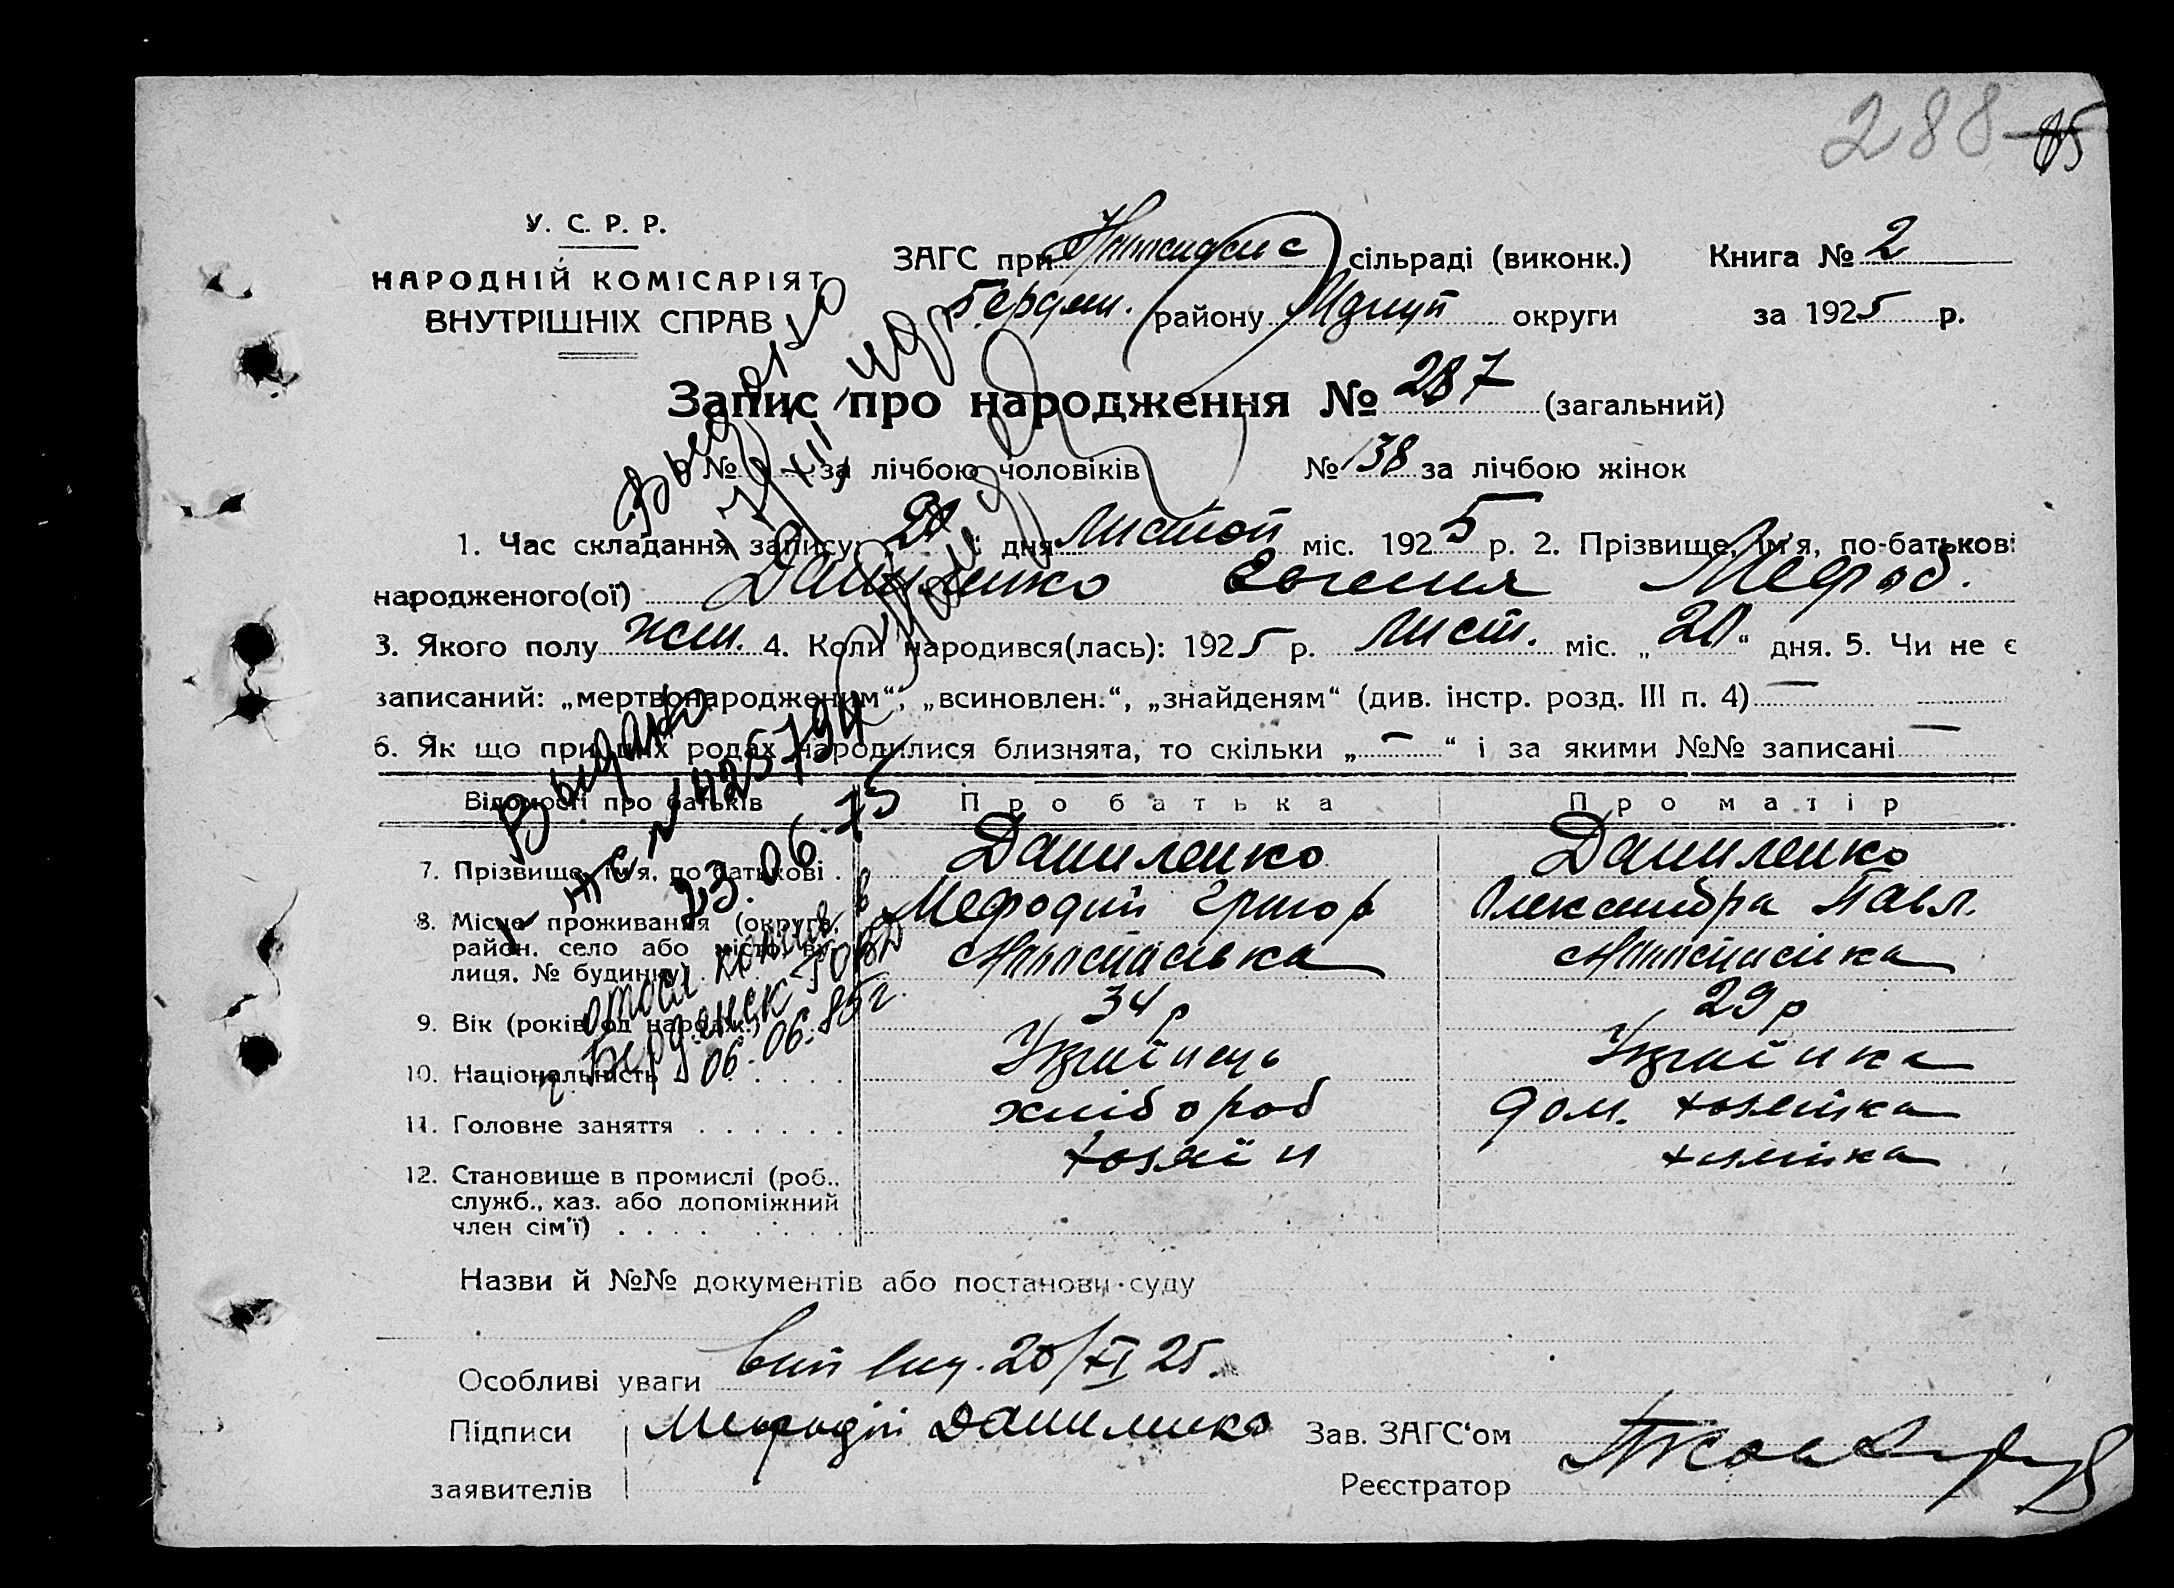 288 85
У. С. Р. Р.
НАРОДНІЙ КОМІСАРІЯТ
ВНУТРІШНІХ СПРАВ
ЗАГС при сільраді (виконк.) Книга № 2
Бердян. району округи за 1925 р.
Запис про народження № 287 (загальний)
№ за лічбою чоловіків № 138 за лічбою жінок
1. Час складання запису: „20“ дня Листоп міс. 1925 р. 2. Прізвище, ім'я, по-батькові
народженого(ої) Даниленко Евгения Мефод.
3. Якого полу жін. 4. Коли народився(лась): 1925 р. Лист. міс. „20“ дня. 5. Чи не є
записаний: „мертвонародженим“, „всиновлен.“, „знайденям“ (див. інстр. розд. III п. 4) —
6. Як що при цих родах народилися близнята, то скільки „ — “ і за якими №№ записані —
Відомості про батьків Про батька Про матір
7. Прізвище, ім'я, по батькові . Даниленко Даниленко
Мефодий Григор Олександра Павл.
8. Місце проживання (округа,
район, село або місто, ву-
лиця, № будинку)
9. Вік (років од народж.) 34 р 29 р
10. Національність Українець Українка
11. Головне заняття . . . . . . хлібороб дом. хозяйка
12. Становище в промислі (роб., хозяїн хозяйка
служб., хаз. або допоміжний
член сім'ї) . . . . . . . .
Выдано
Выдано
№ 425794
23.06.75
г. Бердянск ГОВД
06.06.85г.
Назви й №№ документів або постанови суду
Особливі уваги вип вид. 20/XI 25.
Підписи Мефодій Даниленко Зав. ЗАГС'ом
заявителів Реєстратор